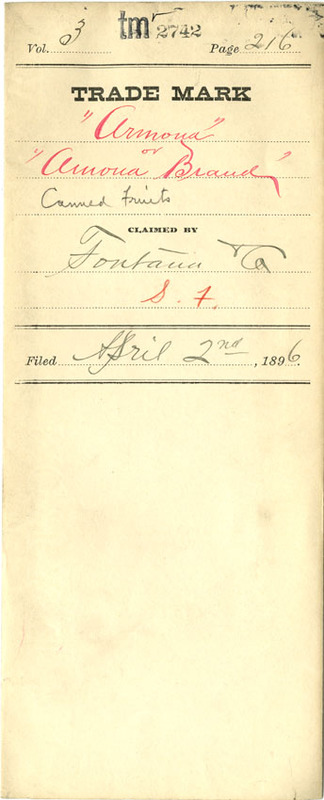 tm 2742
Vol. 3 Page 216
TRADE MARK
"Armona"
or
"Amona Brand"
Canned Fruits
CLAIMED BY
Fontana & Co
S. F.
Filed April 2nd, 1896.